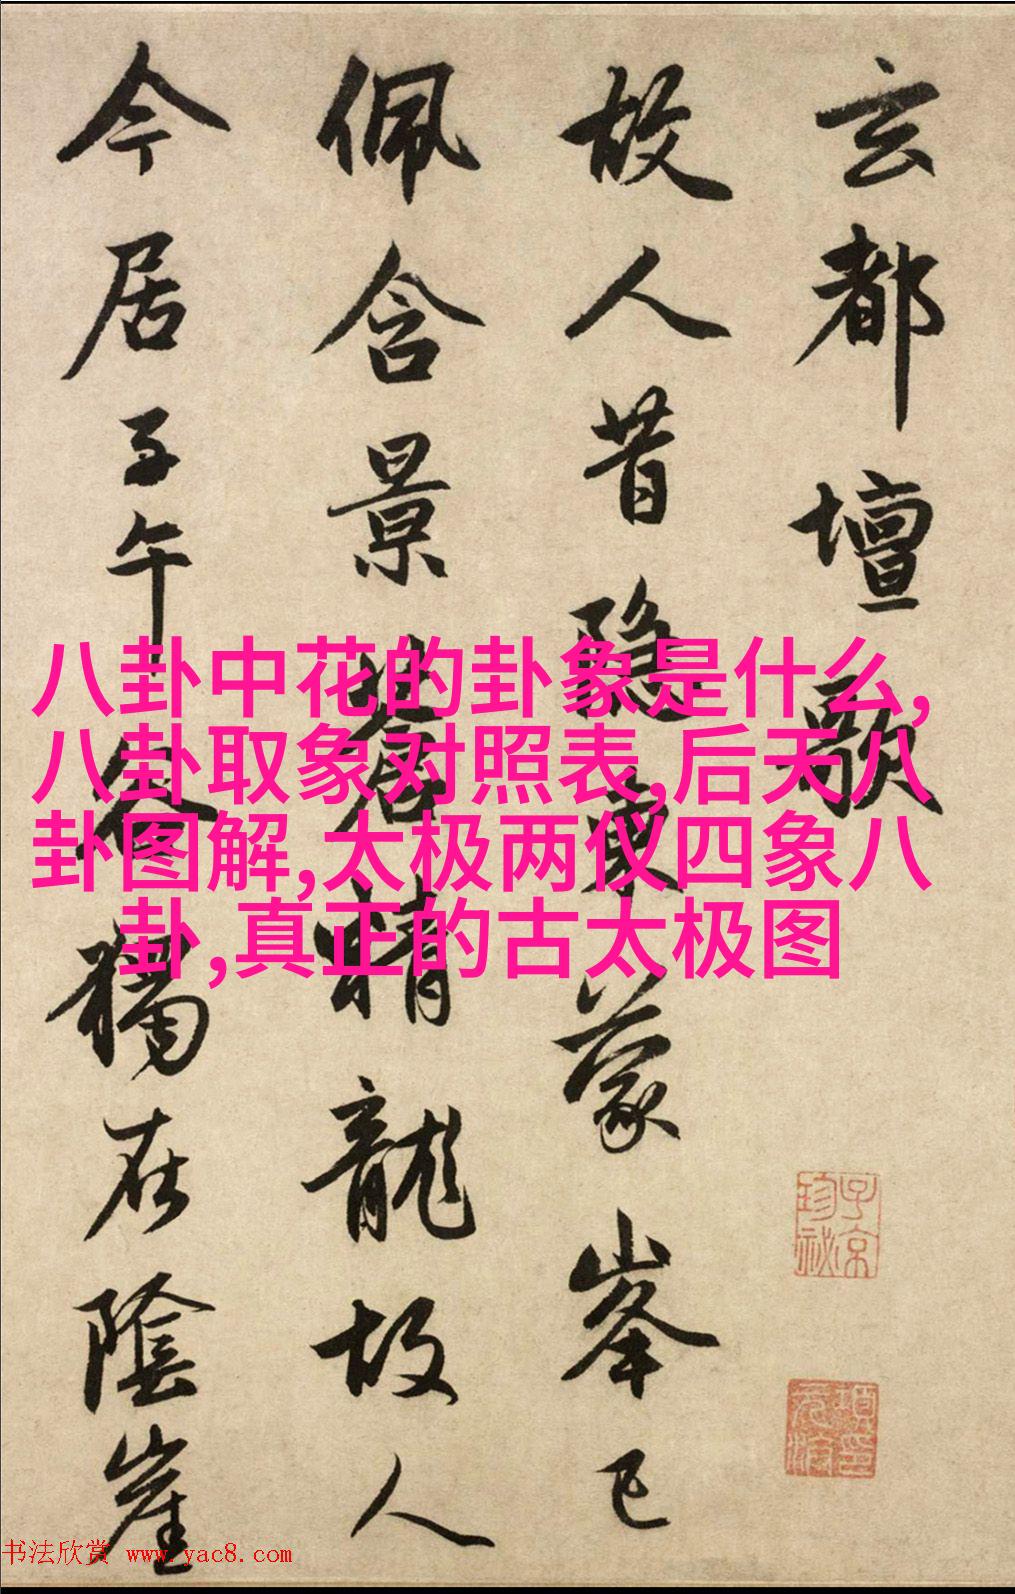 玄都壇歌
故人昔隐東蒙峯已
佩含景蒼精龍故人
今居子午谷獨在陰崖
八卦中花的卦象是什么,
八卦取象对照表,后天八
卦图解,太极两仪四象八
卦,真正的古太极图
子京
珍祕
项元汴印
书法欣赏 www.yac8.com